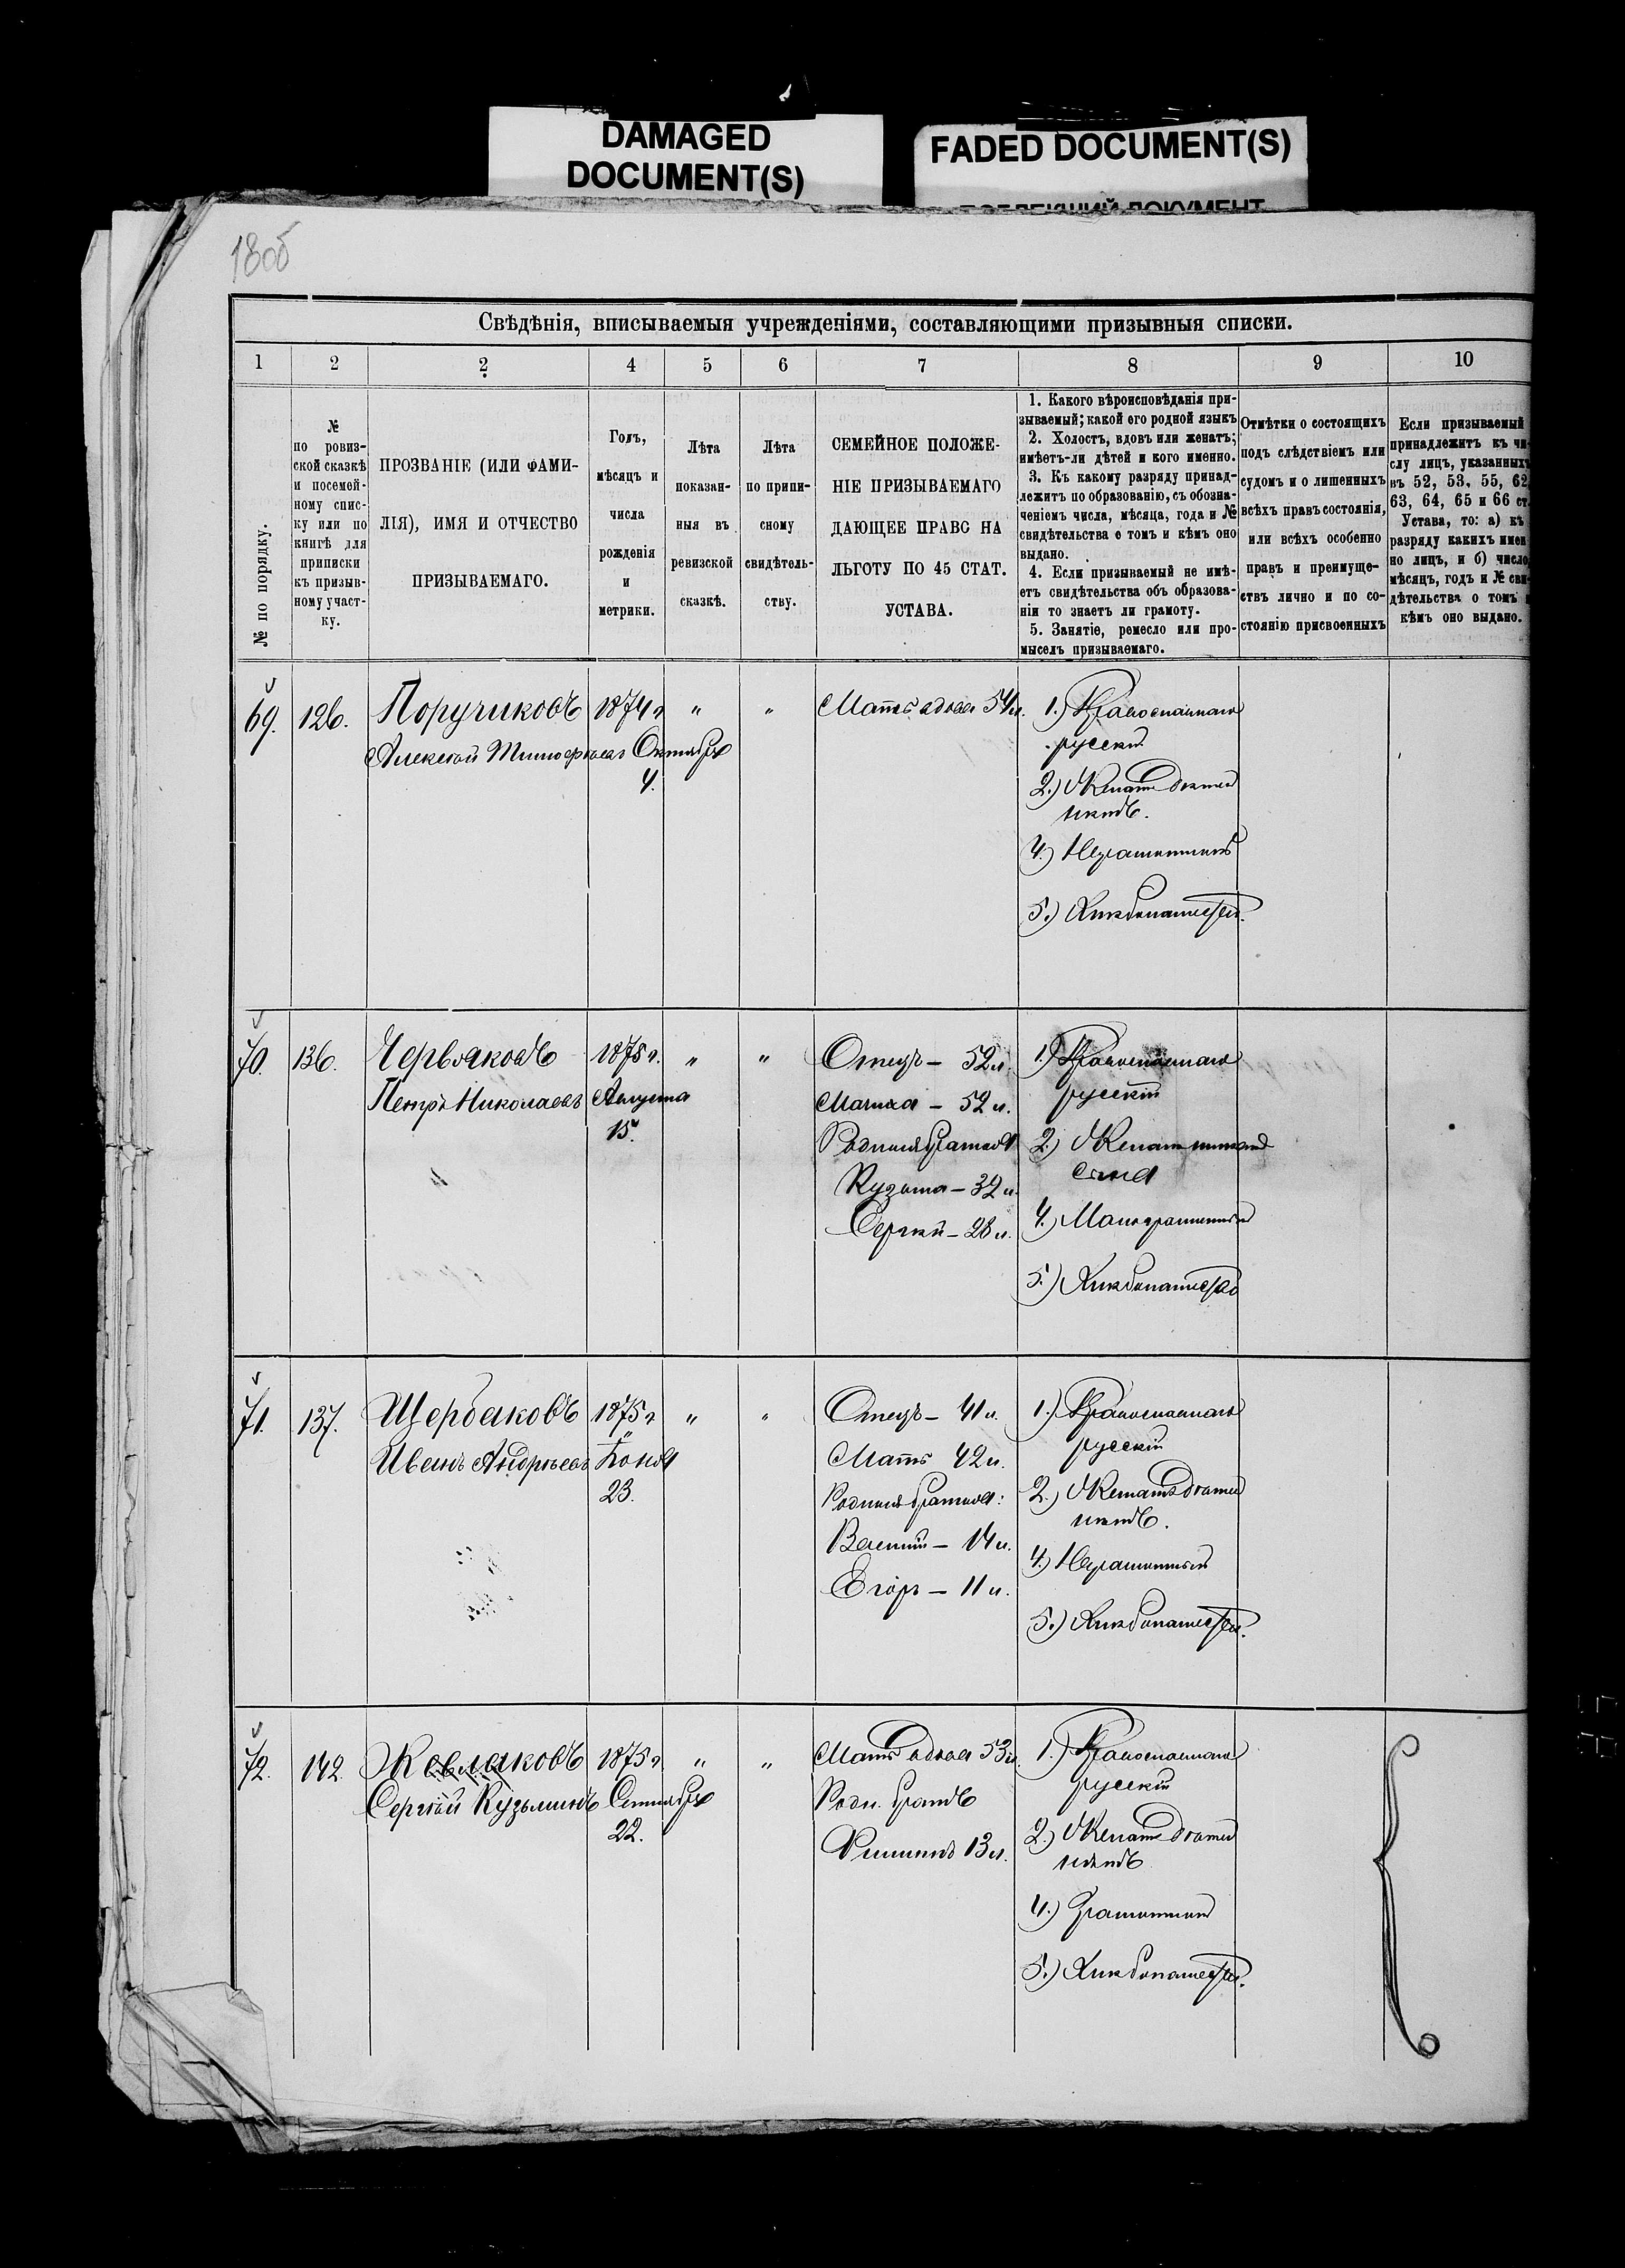 DAMAGED
DOCUMENT(S)
FADED DOCUMENT(S)
180б
Свѣдѣнія, вписываемыя учрежденіями, составляющими призывныя списки.
1 2 2 4 5 6 7 8 9 10
№ по порядку.
№
по ровиз-
ской сказкѣ
и посемей-
ному спис-
ку или по
книгѣ для
приписки
къ призыв-
ному участ-
ку.
ПРОЗВАНІЕ (ИЛИ ФАМИ-
ЛІЯ), ИМЯ И ОТЧЕСТВО
ПРИЗЫВАЕМАГО.
Годъ,
мѣсяцъ и
числа
рожденія
и
метрики.
Лѣта
показан-
ныя въ
ревизской
сказкѣ.
Лѣта
по припи-
сному
свидѣтель-
ству.
СЕМЕЙНОЕ ПОЛОЖЕ-
НІЕ ПРИЗЫВАЕМАГО
ДАЮЩЕЕ ПРАВО НА
ЛЬГОТУ ПО 45 СТАТ.
УСТАВА.
1. Какого вѣроисповѣданія при-
зываемый; какой его родной языкъ
2. Холостъ, вдовъ или женатъ;
имѣетъ-ли дѣтей и кого именно.
3. Къ какому разряду принад-
лежитъ по образованію, съ обозна-
ченіемъ числа, мѣсяца, года и №
свидѣтельства о томъ и кѣмъ оно
выдано.
4. Если призываемый не имѣ-
етъ свидѣтельства объ образова-
ніи то знаетъ ли грамоту.
5. Занятіе, ремесло или про-
мыселъ призываемаго.
Отмѣтки о состоящихъ
подъ слѣдствіемъ или
судомъ и о лишенныхъ
всѣхъ правъ состоянія,
или всѣхъ особенно
правъ и преимуще-
ствъ лично и по со-
стоянію присвоенныхъ
Если призываемый
принадлежитъ къ чи-
слу лицъ, указанныхъ
въ 52, 53, 55, 62,
63, 64, 65 и 66 ст.
Устава, то: а) къ
разряду какихъ имен
но лицъ, и б) число,
мѣсяцъ, годъ и № сви-
дѣтельства о томъ и
кѣмъ оно выдано.
69. 126. Поручиковъ 1874 г. " " Мать вдова 54 л.
Алексѣй Тимофѣевъ Октября
4.
1.) Православнаго
русскій
2.) Женатъ дѣтей
нѣтъ.
4.) Неграмотный
5.) Хлѣбопашество.
70. 136. Червяковъ 1875 г. " " Отецъ – 52 л.
Петръ Николаевъ Августа
15.
Мачиха – 52 л.
Родныя братья
Кузьма – 32 л.
Сергѣй – 28 л.
1.) Православнаго
русскій
2.) Женатъ имѣетъ
сына
4.) Малограмотный
5.) Хлѣбопашество
71. 137. Щербаковъ 1875 г. " " Отецъ – 41 л.
Иванъ Андрѣевъ Іюня
23.
Мать 42 л.
Родныя братья:
Василій – 14 л.
Егоръ – 11 л.
1.) Православнаго
русскій
2.) Женатъ дѣтей
нѣтъ.
4.) Неграмотный
5.) Хлѣбопашество.
72. 142. 1875 г. " " Мать вдова 53 л.
Сергѣй Кузьминъ Сентября
22.
Родн. братъ
Филиппъ 13 л.
1.) Православнаго
русскій
2.) Женатъ дѣтей
нѣтъ
4.) Грамотный
5.) Хлѣбопашество.